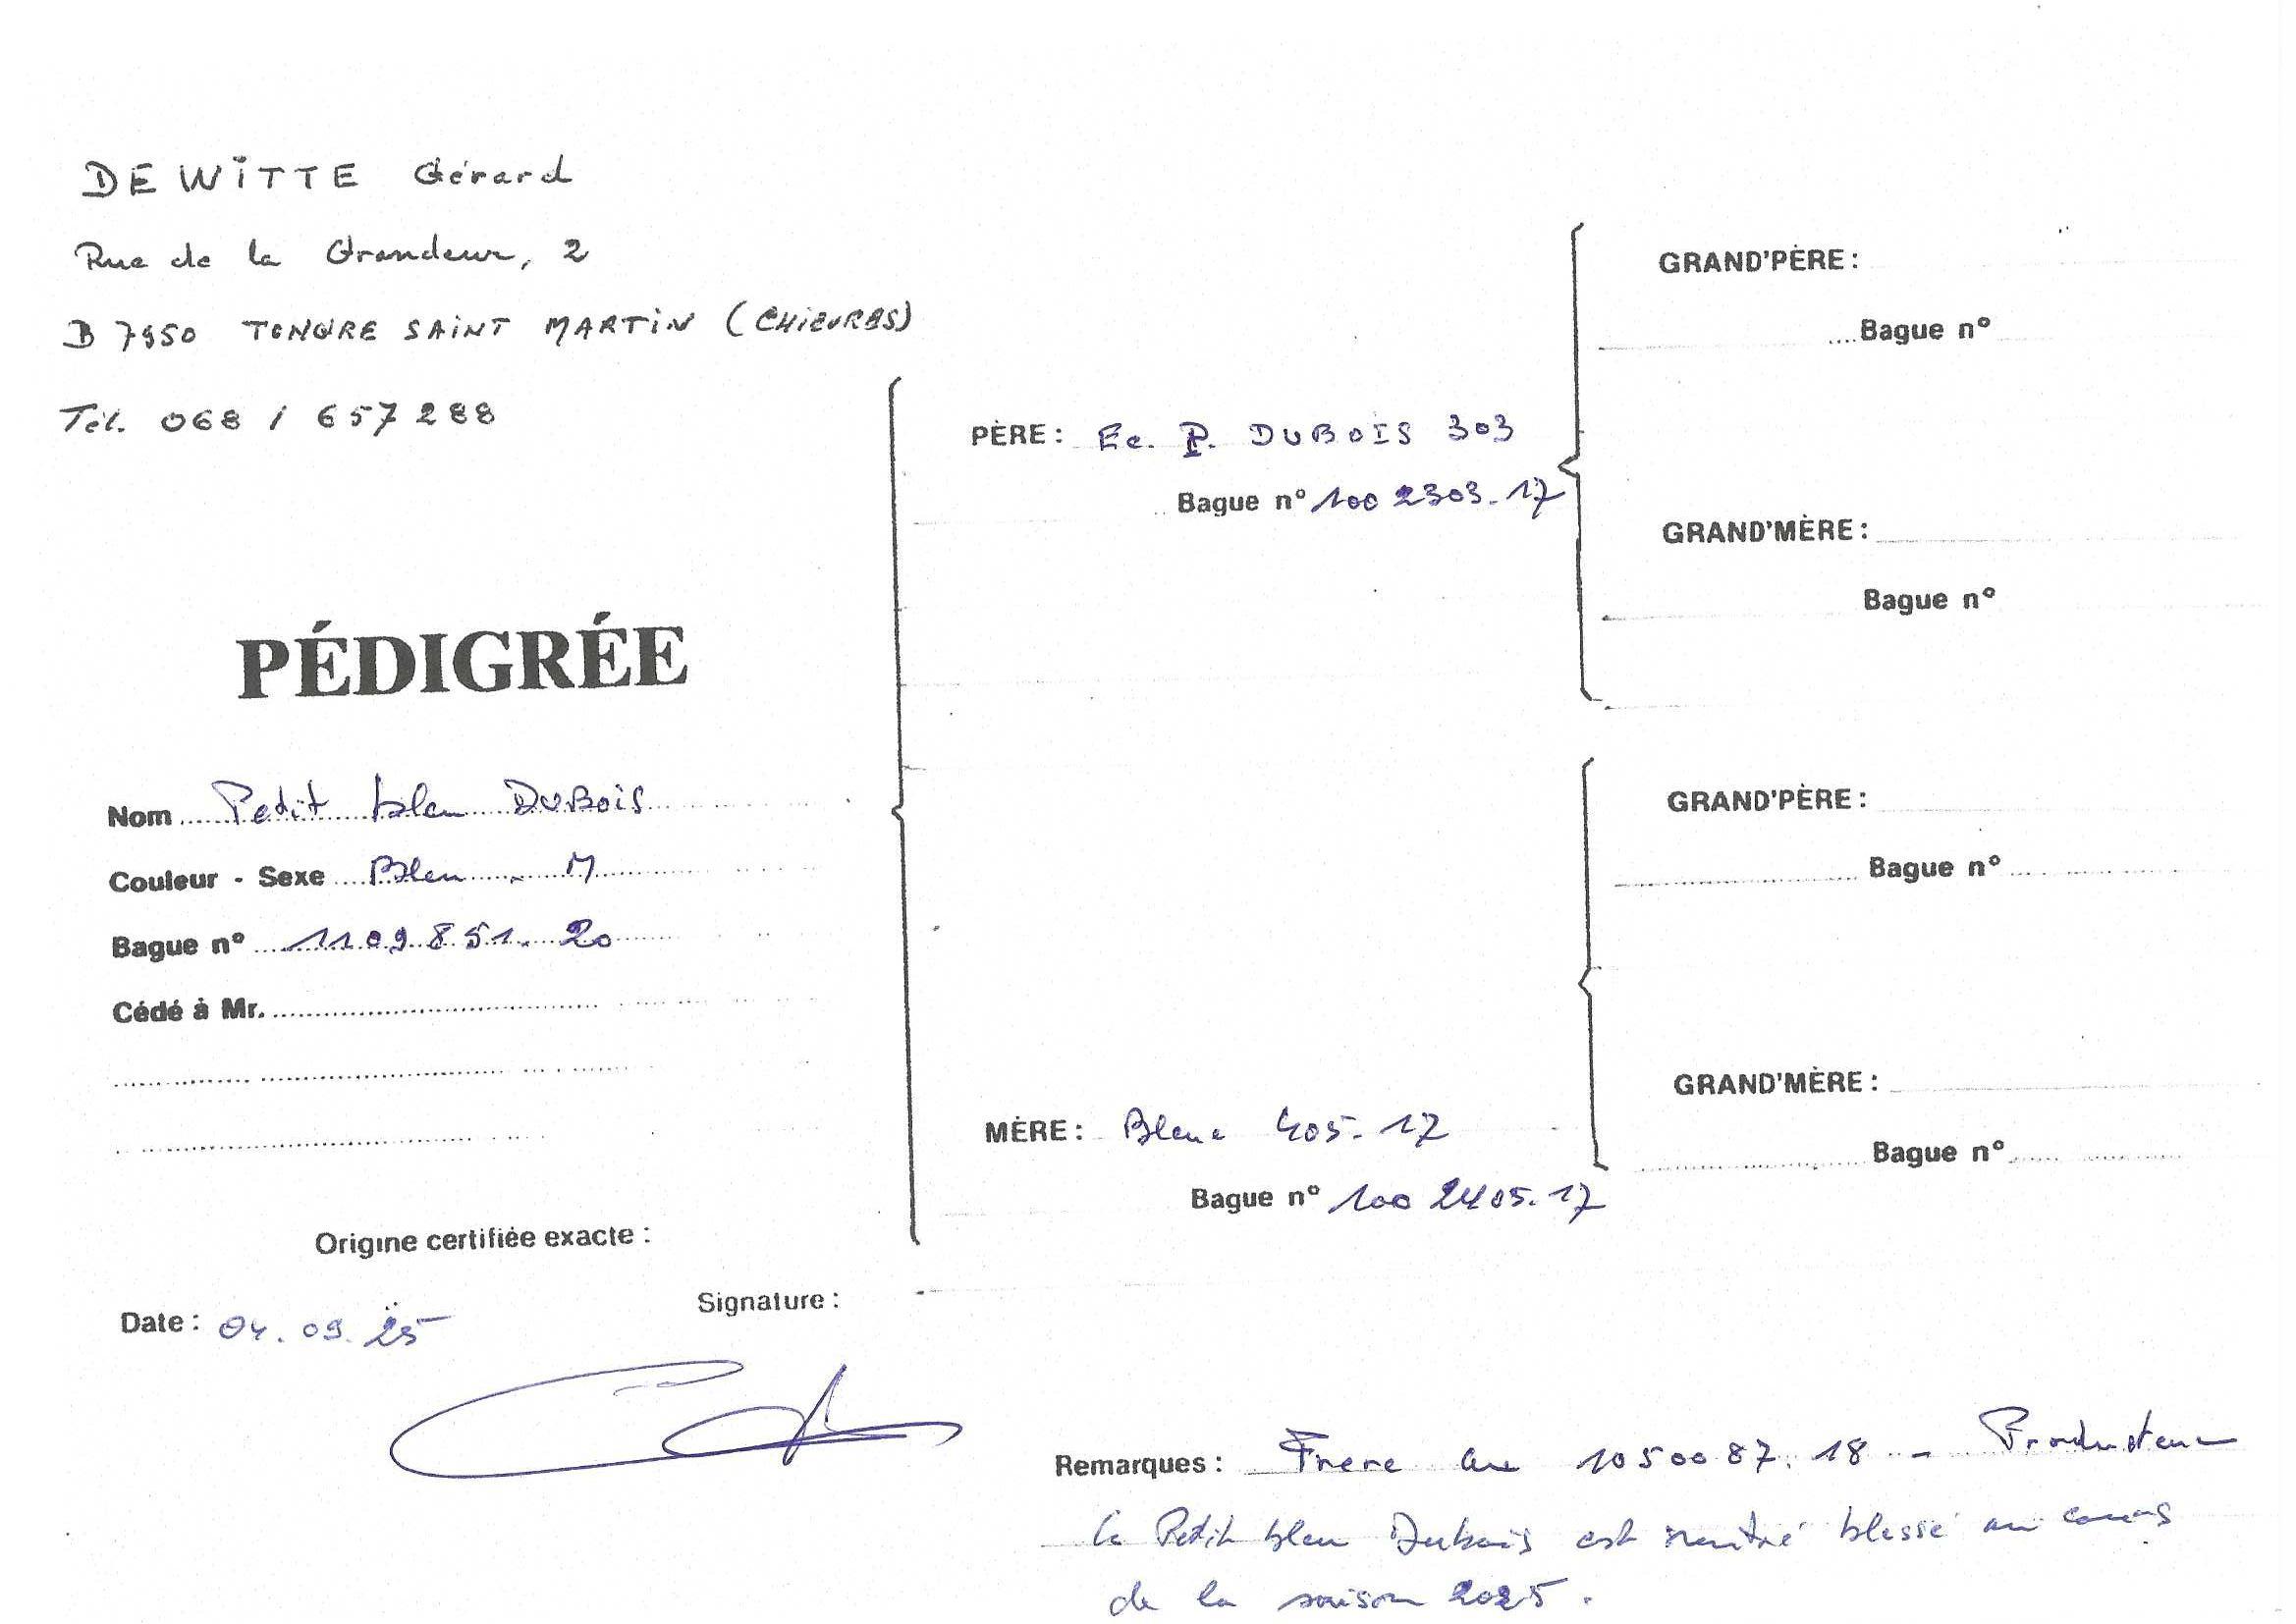 DE WITTE Gérard
Rue de la Grandeur, 2
B 7950 TONGRE SAINT MARTIN (CHIEVRES)
Tél. 068 / 657288
PÉDIGRÉE
Nom Petit bleu DUBOIS
Couleur - Sexe Bleu - M
Bague n° 1109851.20
Cédé à Mr.
Origine certifiée exacte :
Date : 04.09.25
Signature :
PÈRE : Ec. P. DUBOIS 303
Bague n° 100 2303.17
MÈRE : Bleue 405-17
Bague n° 100 2405.17
GRAND'PÈRE :
Bague n°
GRAND'MÈRE :
Bague n°
GRAND'PÈRE :
Bague n°
GRAND'MÈRE :
Bague n°
Remarques : Frère au 1050087.18 - Producteur
Le Petit bleu Dubois est rentré blessé au cours
de la saison 2025.